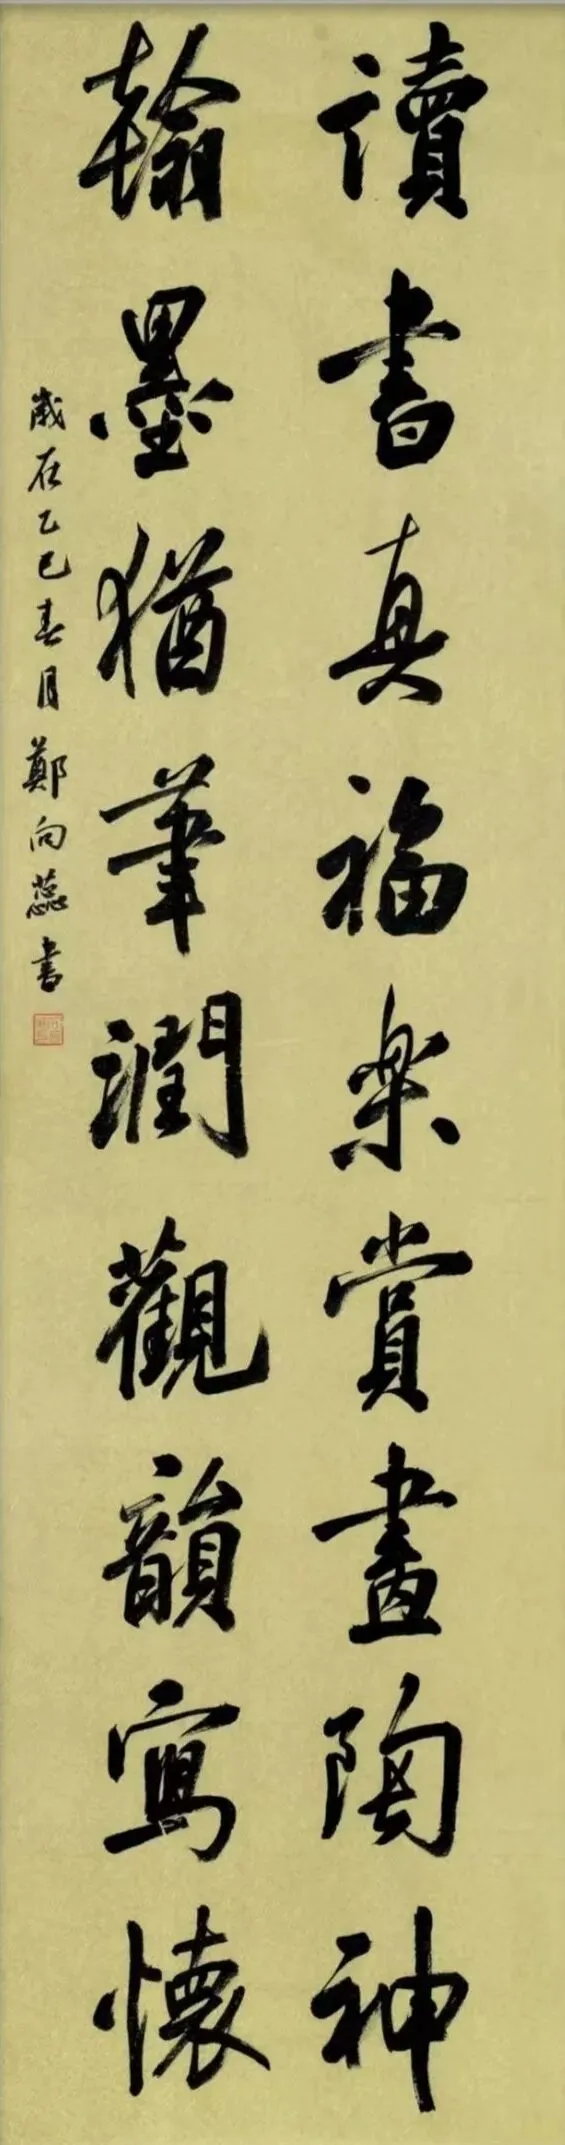 讀書真福樂賞畫陶神
翰墨猶華潤觀韻寫懷
歲在乙巳春月鄭向蕊書